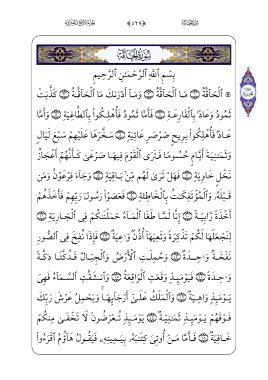 سُورَةُ الْحَاقَّةِ
بِسْمِ ٱللَّهِ ٱلرَّحْمَٰنِ ٱلرَّحِيمِ
ٱلْحَآقَّةُ ١ مَا ٱلْحَآقَّةُ ٢ وَمَآ أَدْرَىٰكَ مَا ٱلْحَآقَّةُ ٣ كَذَّبَتْ
ثَمُودُ وَعَادٌۢ بِٱلْقَارِعَةِ ٤ فَأَمَّا ثَمُودُ فَأُهْلِكُوا۟ بِٱلطَّاغِيَةِ ٥ وَأَمَّا
عَادٌ فَأُهْلِكُوا۟ بِرِيحٍ صَرْصَرٍ عَاتِيَةٍ ٦ سَخَّرَهَا عَلَيْهِمْ سَبْعَ لَيَالٍ
وَثَمَٰنِيَةَ أَيَّامٍ حُسُومًا فَتَرَى ٱلْقَوْمَ فِيهَا صَرْعَىٰ كَأَنَّهُمْ أَعْجَازُ
نَخْلٍ خَاوِيَةٍ ٧ فَهَلْ تَرَىٰ لَهُم مِّنۢ بَاقِيَةٍ ٨ وَجَآءَ فِرْعَوْنُ وَمَن
قَبْلَهُۥ وَٱلْمُؤْتَفِكَٰتُ بِٱلْخَاطِئَةِ ٩ فَعَصَوْا۟ رَسُولَ رَبِّهِمْ فَأَخَذَهُمْ
أَخْذَةً رَّابِيَةً ١٠ إِنَّا لَمَّا طَغَا ٱلْمَآءُ حَمَلْنَٰكُمْ فِى ٱلْجَارِيَةِ ١١
لِنَجْعَلَهَا لَكُمْ تَذْكِرَةً وَتَعِيَهَآ أُذُنٌ وَٰعِيَةٌ ١٢ فَإِذَا نُفِخَ فِى ٱلصُّورِ
نَفْخَةٌ وَٰحِدَةٌ ١٣ وَحُمِلَتِ ٱلْأَرْضُ وَٱلْجِبَالُ فَدُكَّتَا دَكَّةً
وَٰحِدَةً ١٤ فَيَوْمَئِذٍ وَقَعَتِ ٱلْوَاقِعَةُ ١٥ وَٱنشَقَّتِ ٱلسَّمَآءُ فَهِىَ
يَوْمَئِذٍ وَاهِيَةٌ ١٦ وَٱلْمَلَكُ عَلَىٰٓ أَرْجَآئِهَا وَيَحْمِلُ عَرْشَ رَبِّكَ
فَوْقَهُمْ يَوْمَئِذٍ ثَمَٰنِيَةٌ ١٧ يَوْمَئِذٍ تُعْرَضُونَ لَا تَخْفَىٰ مِنكُمْ
خَافِيَةٌ ١٨ فَأَمَّا مَنْ أُوتِىَ كِتَٰبَهُۥ بِيَمِينِهِۦ فَيَقُولُ هَآؤُمُ ٱقْرَءُوا۟